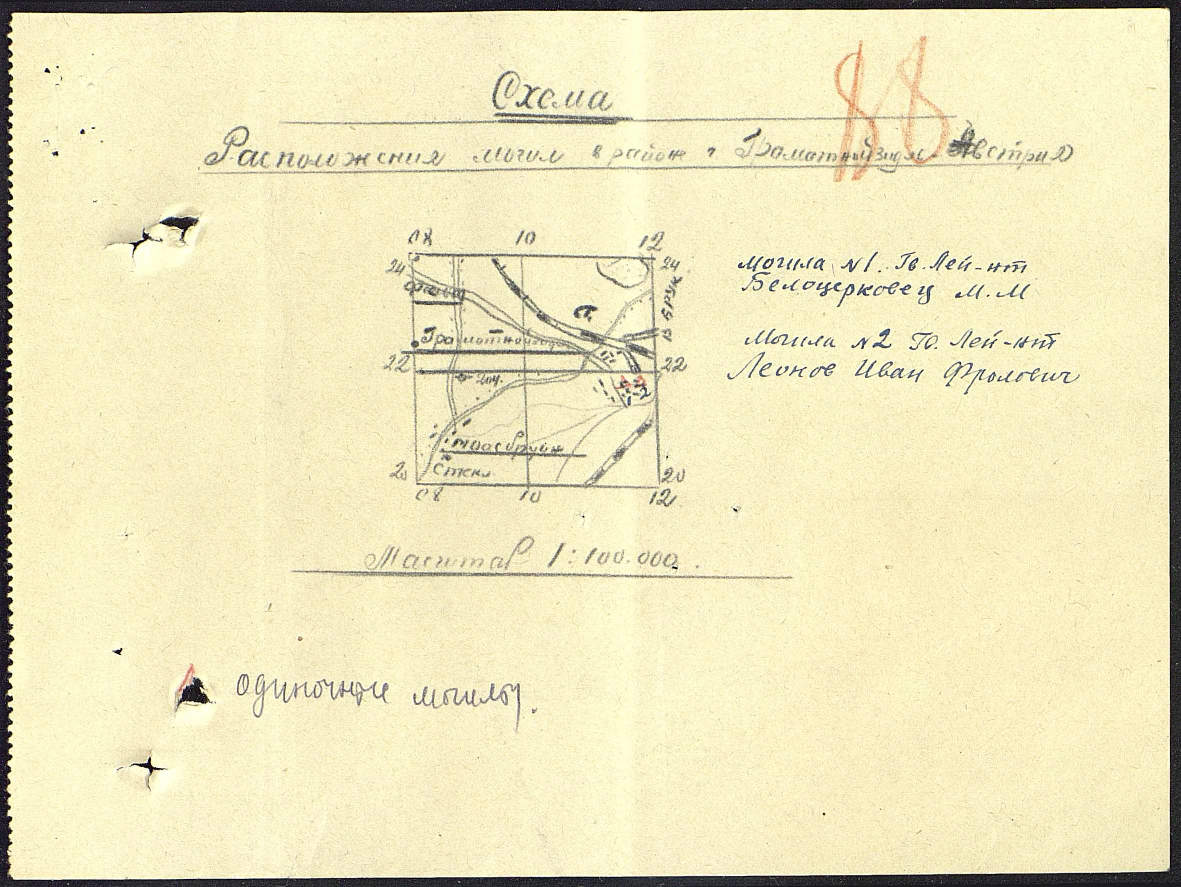 88
Схема
Расположения могил в район г Граматнойзидл. Австрия
08 10 12
24 24
В БРУК
Ст.
Граматнойзидл
22 22
204
Моосбрунн
Стекл.
20 20
08 10 12
могила №1. Гв. Лей-нт
Белоцерковец М.М
Могила №2 Гв. Лей-нт
Леонов Иван Фролович
Масштаб 1:100.000.
одиночные могилы.